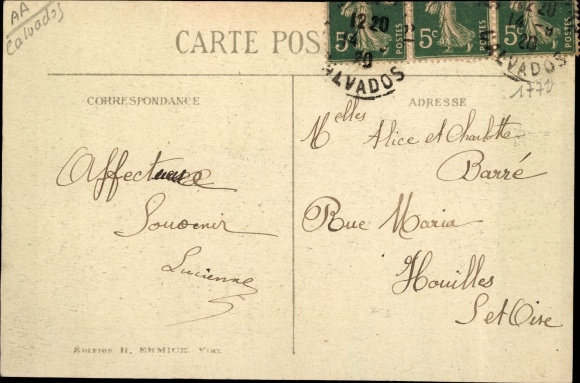 AA
Calvados
CARTE POS
5c POSTES 5c POSTES 5c POSTES
12 20
20
CALVADOS
12 20
14 - 9
20
CALVADOS
1770
CORRESPONDANCE
ADRESSE
Affectueux
Souvenir
Lucienne
Melles Alice et Charlotte
Barré
Rue Maria
Houilles
S et Oise
Edition H. ERMICE, Vire